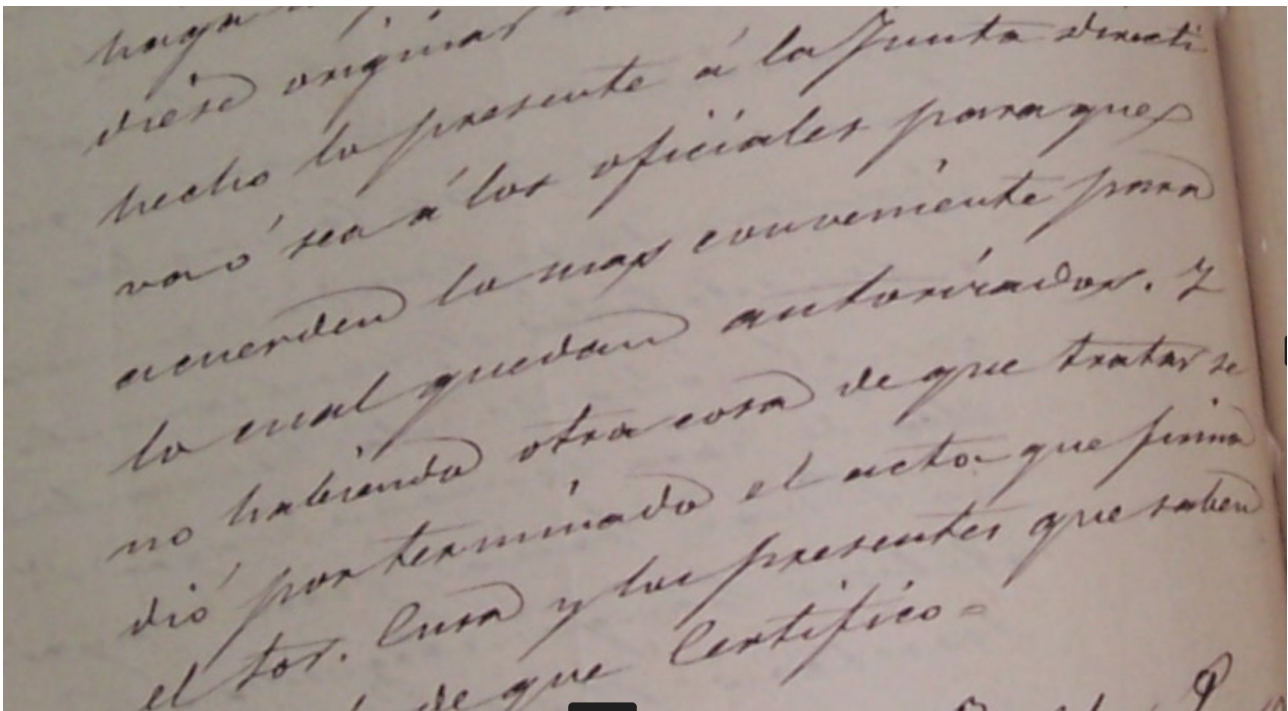 haga
diese origina
hecho lo presente á la Junta directi
va ó sea á los oficiales para que
acuerden lo mas conveniente para
lo cual quedan autorizados. Y
no habiendo otra cosa de que tratar se
dió por terminado el acto que firma
el Sor. Cura y los presentes que saben
de que Certifico=